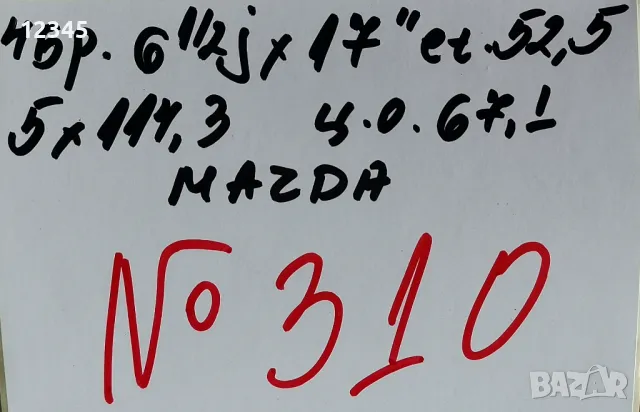 12345
4бр. 6 1/2j x 17" et. 52,5
5x114,3 ц.о. 67,1
MAZDA
№ 310
BAZAR